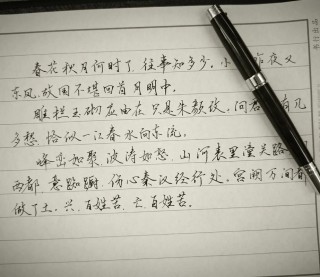 春花秋月何时了,往事知多少。小 昨夜又
东风,故国不堪回首月明中。
雕栏玉砌应由在,只是朱颜改。问君 有几
多愁,恰似一江春水向东流。
峰峦如聚,波涛如怒,山河表里潼关路。
西都,意踟蹰,伤心秦汉经行处。宫阙万间都
做了土。兴,百姓苦,亡,百姓苦。